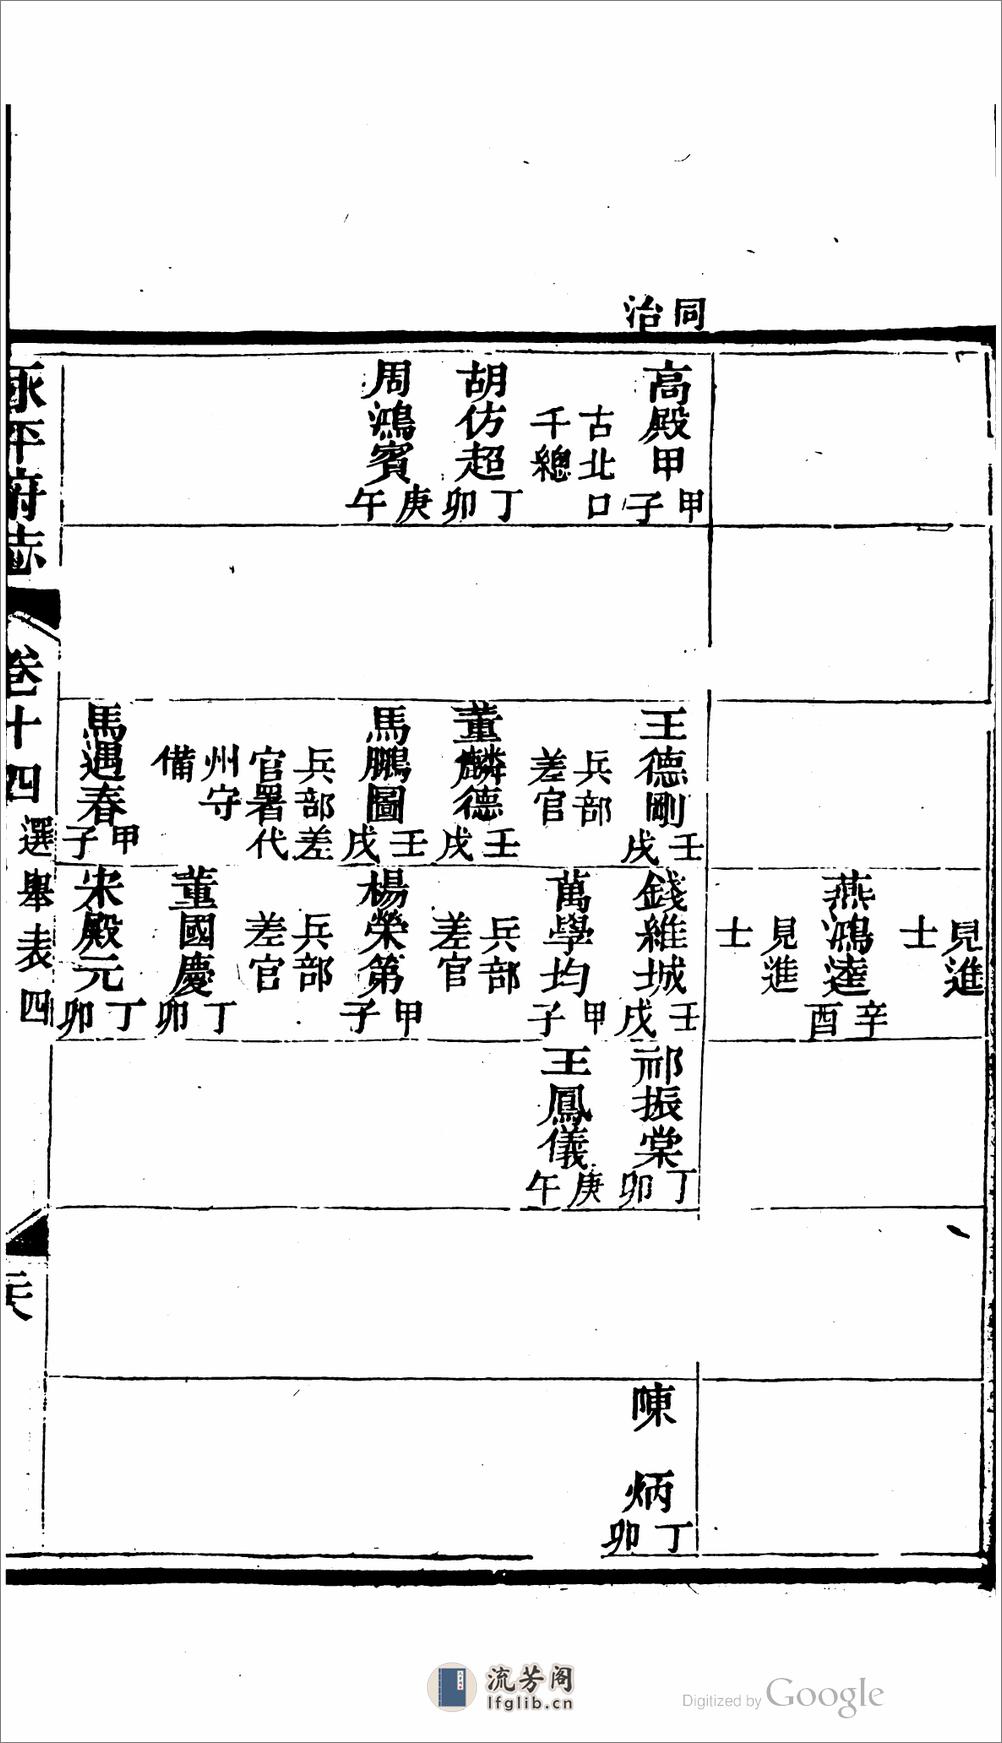 同治
高殿甲甲子
古北口
千總
胡仿超丁卯
周鴻賓庚午
王德剛壬戌
兵部
差官
董麟德壬戌
馬鵬圖壬戌
兵部差
官署代
州守
備
馬遇春甲子
見進
士
燕鴻逵辛酉
見進
士
錢維城壬戌
萬學均甲子
兵部
差官
楊榮第甲子
兵部
差官
董國慶丁卯
宋殿元丁卯
祁振棠丁卯
王鳳儀庚午
陳炳丁卯
永平府志
卷十四
選舉表四
流芳阁
lfglib.cn
Digitized by Google